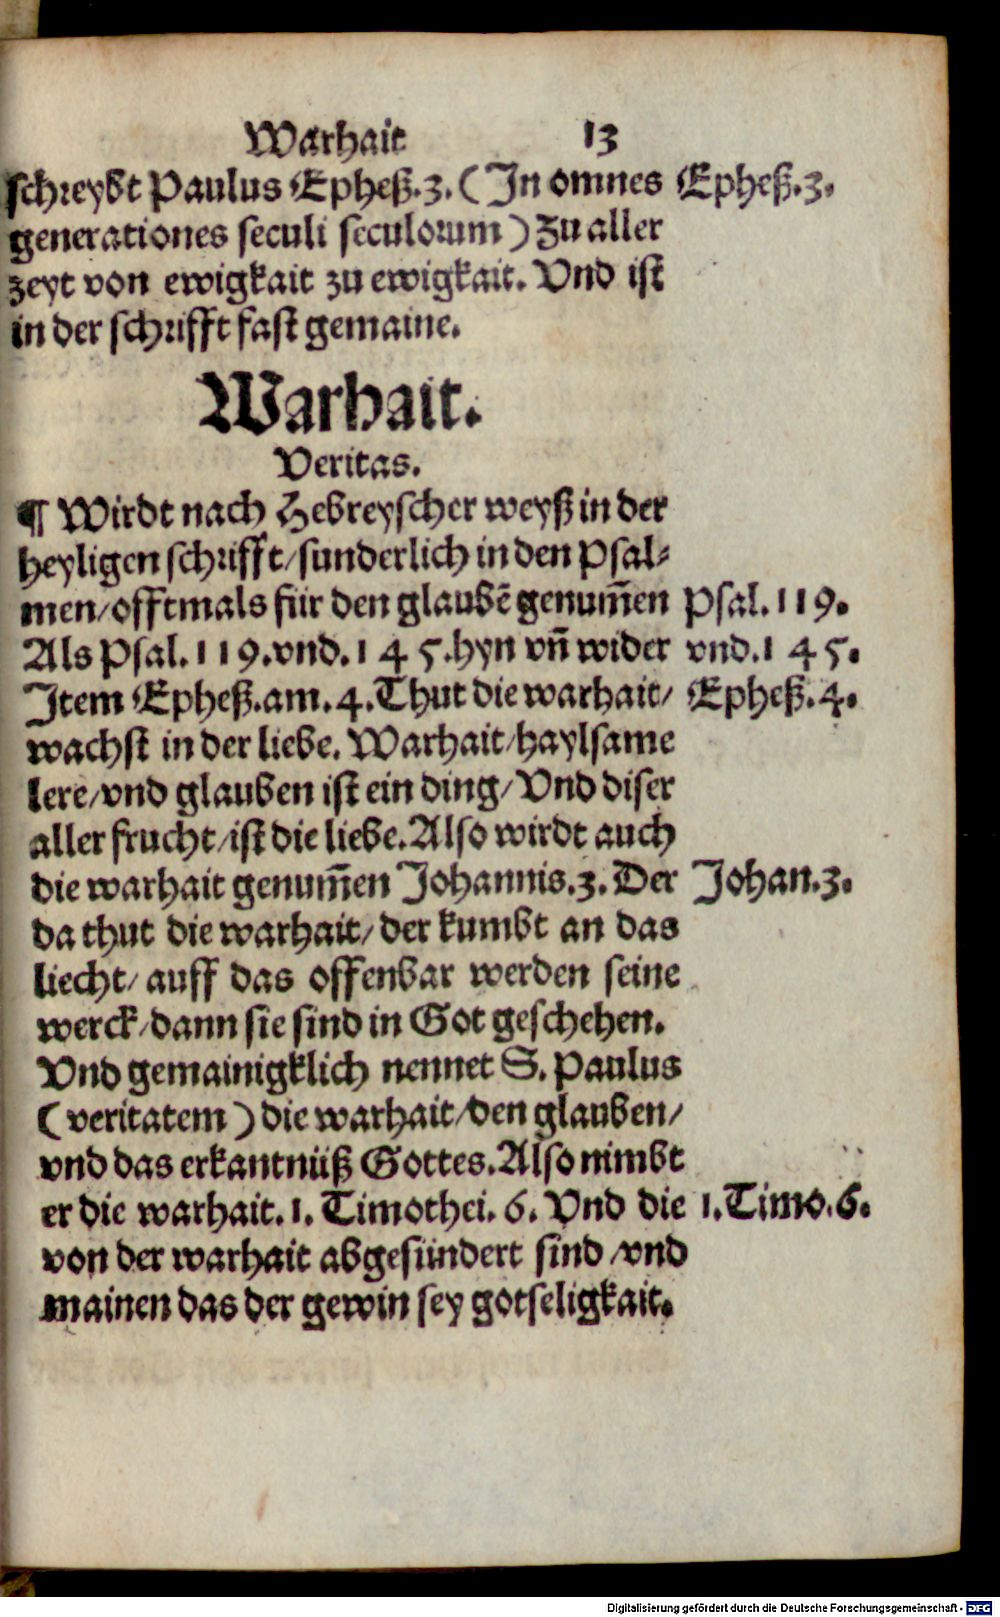 Warhait 13
schreybt Paulus Epheß.3. (In omnes Epheß.3.
generationes seculi seculorum) zu aller
zeyt von ewigkait zu ewigkait. Vnd ist
in der schrifft fast gemaine.
Warhait.
Veritas.
¶ Wirdt nach Hebreyscher weyß in der
heyligen schrifft/sunderlich in den Psal⸗
men/offtmals für den glaubē genum̄en Psal.119.
Als Psal.119.vnd.145.hyn vn̄ wider vnd.145.
Item Epheß.am.4.Thut die warhait/ Epheß.4.
wachst in der liebe. Warhait/haylsame
lere/vnd glauben ist ein ding/Vnd diser
aller frucht/ist die liebe.Also wirdt auch
die warhait genum̄en Johannis.3. Der Johan.3.
da thut die warhait/der kumbt an das
liecht/auff das offenbar werden seine
werck/dann sie sind in Got geschehen.
Vnd gemainigklich nennet S. Paulus
(veritatem) die warhait/den glauben/
vnd das erkantnüß Gottes.Also nimbt
er die warhait.1. Timothei. 6. Vnd die 1.Timo.6.
von der warhait abgesündert sind/vnd
mainen das der gewin sey gotseligkait.
Digitalisierung gefördert durch die Deutsche Forschungsgemeinschaft - DFG